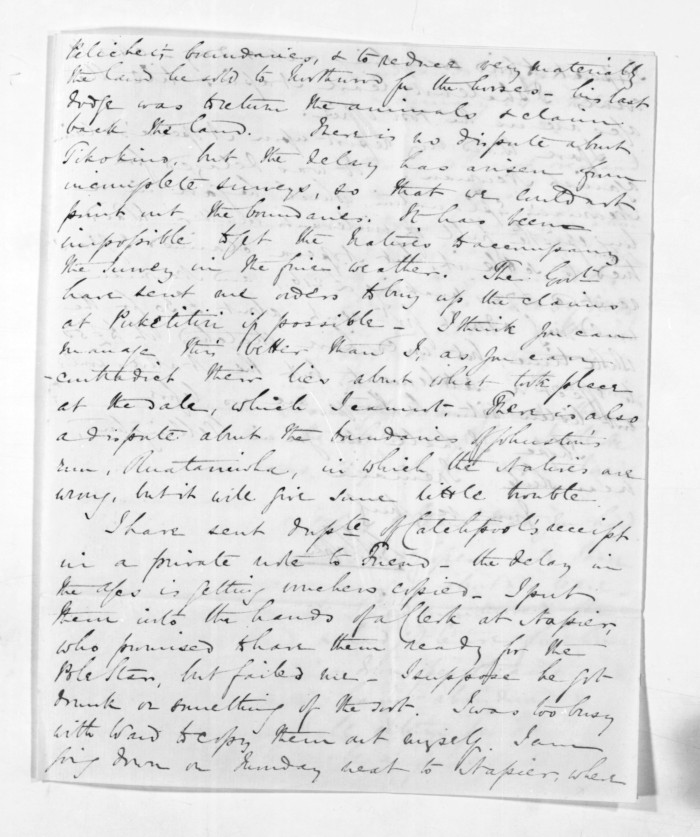 boundaries, & to reduce very materially
the land he sold to Northwood for the horses – his last
dodge was to return the animals & claim
back the land. There is no dispute about
Tikokino, but the delay has arisen from
incomplete surveys, so that we could not
point out the boundaries. It has been
impossible to get the Natives to accompany
the survey in the fine weather. The Govt.
have sent me orders to buy up the claims
at Puketitiri if possible – I think you can
manage this better than I, as you can
contradict their lies about what took place
at the sale, which I cannot. There is also
a dispute about the boundaries of Johnston's
run, in which the Natives are
wrong, but it will give some little trouble.
I have sent dupte. of Catchpool's receipt
in a private note to Friend – the delay in
the is getting vouchers copied – I put
them into the hands of a Clerk at Napier,
who promised to have them ready for the
Pole Star, but failed me – I suppose he got
drunk or something of the sort. I was too busy
with Ward to copy them out myself. I am
going down on Sunday next to Napier, when